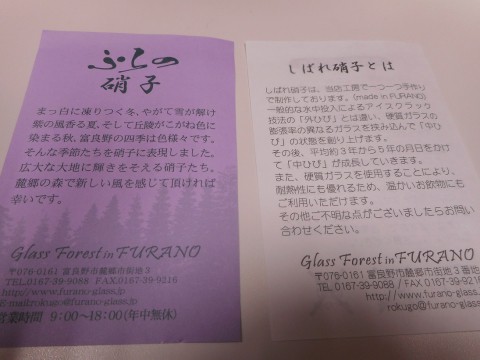 ふらの
硝子
真っ白に凍りつく冬、やがて雪が解け
紫の風香る夏、そして丘陵がこがね色に
染まる秋、富良野の四季は色様々です。
そんな季節たちを硝子に表現しました。
広大な大地に輝きをそえる硝子たち、
麓郷の森で新しい風を感じて頂ければ
幸いです。
Glass Forest in FURANO
〒076-0161 富良野市麓郷市街地3
TEL 0167-39-9088/FAX.0167-39-9216
http://www.furano-glass.jp
E-mail:rokugo@furano-glass.jp
営業時間 9:00〜18:00(年中無休)
しばれ硝子とは
しばれ硝子は、当店工房で一つ一つ手作り
で制作しております。(made in FURANO)
一般的な水中投入によるアイスクラック
技法の「外ひび」とは違い、硬質ガラスの
膨張率の異なるガラスを挟み込んで「中ひ
び」の状態を創り上げます。
その後、平均約3年から5年の月日をかけ
て「中ひび」が成長していきます。
また、硬質ガラスを使用することにより、
耐熱性にも優れるため、温かいお飲物にも
ご利用いただけます。
その他ご不明な点がございましたらお問い
合わせください。
Glass Forest in FURANO
〒076-0161 富良野市麓郷市街地3番地
TEL 0167-39-9088 / FAX 0167-39-921
http://www.furano-glass.
rokugo@furano-glass